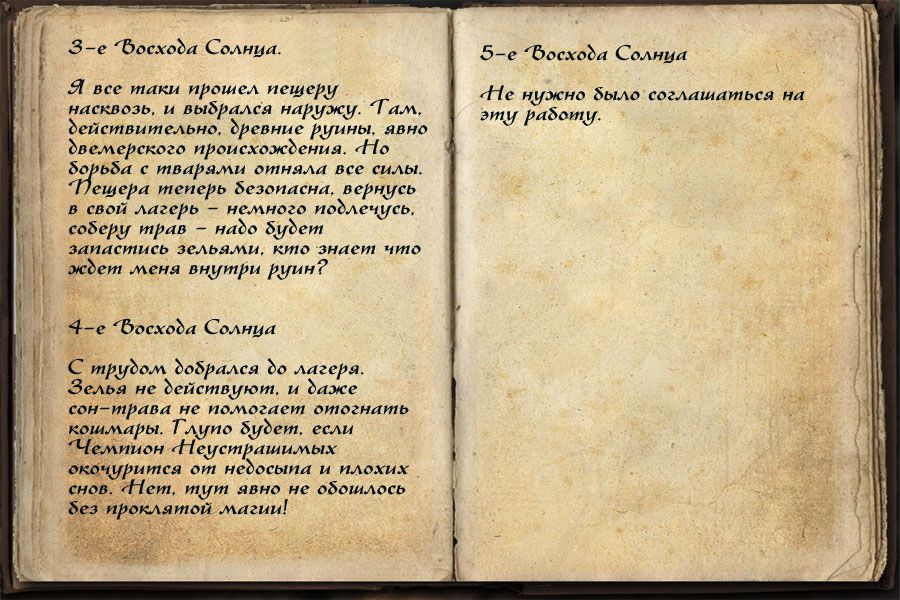 3-е Восхода Солнца.
Я все таки прошел пещеру
насквозь, и выбрался наружу. Там,
действительно, древние руины, явно
двемерского происхождения. Но
борьба с тварями отняла все силы.
Пещера теперь безопасна, вернусь
в свой лагерь - немного подлечусь,
соберу трав - надо будет
запастись зельями, кто знает что
ждет меня внутри руин?
4-е Восхода Солнца
С трудом добрался до лагеря.
Зелья не действуют, и даже
сон-трава не помогает отогнать
кошмары. Глупо будет, если
Чемпион Неустрашимых
окочурится от недосыпа и плохих
снов. Нет, тут явно не обошлось
без проклятой магии!
5-е Восхода Солнца
Не нужно было соглашаться на
эту работу.